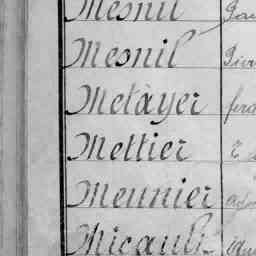 Mesnil
Mesnil
Metàyer
Mettier
Meunier
Micault